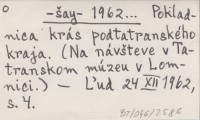 o
-šay- 1962... Poklad-
nica krás podtatranského
kraja. (Na návšteve v Ta-
transkom múzeu v Lom-
nici.) — Ľud 24 XII 1962,
s. 4.
37/046/2586